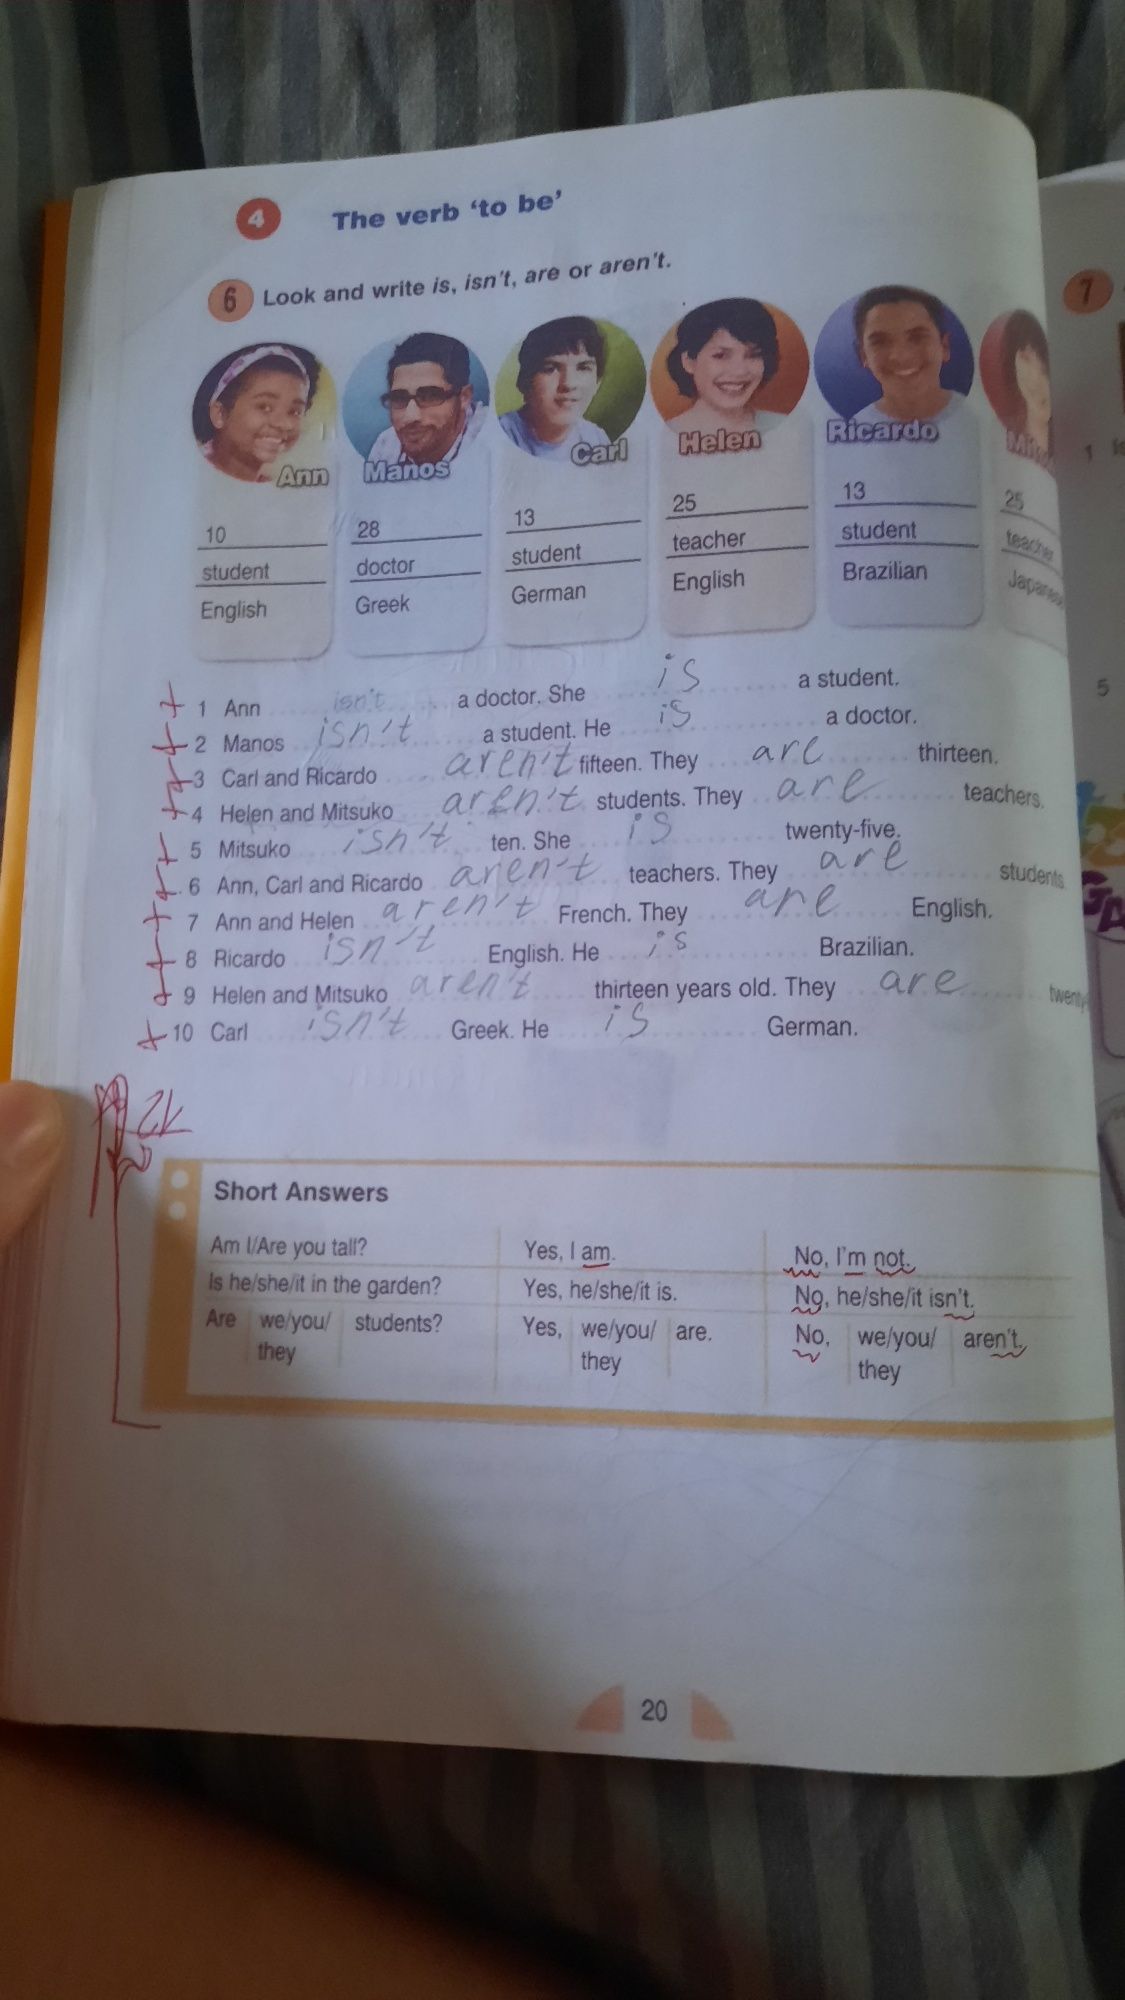 4 The verb 'to be'
6 Look and write is, isn't, are or aren't.
7
Ann Manos Carl Helen Ricardo
10 28 13 25 13 25
student doctor student teacher student teacher
English Greek German English Brazilian Japanese
1 Ann isn't a doctor. She is a student.
2 Manos isn't a student. He is a doctor.
3 Carl and Ricardo aren't fifteen. They are thirteen.
4 Helen and Mitsuko aren't students. They are teachers.
5 Mitsuko isn't ten. She is twenty-five.
6 Ann, Carl and Ricardo aren't teachers. They are students.
7 Ann and Helen aren't French. They are English.
8 Ricardo isn't English. He is Brazilian.
9 Helen and Mitsuko aren't thirteen years old. They are
10 Carl isn't Greek. He is German.
1
5
Short Answers
Am I/Are you tall? Yes, I am. No, I'm not.
Is he/she/it in the garden? Yes, he/she/it is. No, he/she/it isn't.
Are we/you/ students? Yes, we/you/ are. No, we/you/ aren't.
they they they
20